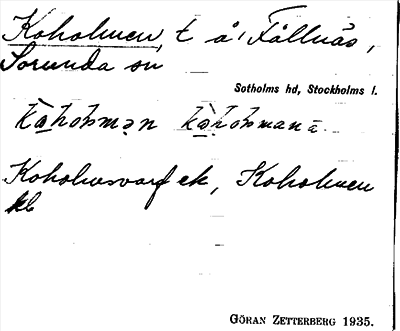 Koholmen, t å, Fållnäs,
Sorunda sn
Sotholms hd, Stockholms l.
Koholmsvarf ek, Koholmen
kb
GÖRAN ZETTERBERG 1935.